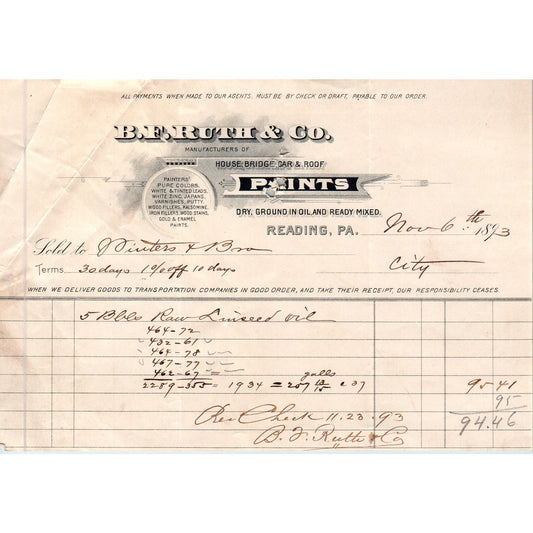 ALL PAYMENTS WHEN MADE TO OUR AGENTS, MUST BE BY CHECK OR DRAFT, PAYABLE TO OUR ORDER.
B.F. RUTH & CO.
MANUFACTURERS OF
HOUSE, BRIDGE, CAR & ROOF
PAINTS
DRY, GROUND IN OIL AND READY MIXED.
PAINTERS'
PURE COLORS,
WHITE & TINTED LEADS,
WHITE ZINC, JAPANS,
VARNISHES, PUTTY,
WOOD FILLERS, KALSOMINE,
IRON FILLERS, WOOD STAINS,
GOLD & ENAMEL
PAINTS.
READING, PA. Nov 6th 1893
Sold to Winters & Bro
City
Terms 30 days 1% off 10 days
WHEN WE DELIVER GOODS TO TRANSPORTATION COMPANIES IN GOOD ORDER, AND TAKE THEIR RECEIPT, OUR RESPONSIBILITY CEASES.
5 Bbls Raw Linseed Oil
464-72
432-61
464-78
467-77
462-67
2289-355 = 1934 = 257 13/15 galls @ 37 95 41
95
94.46
Rec Check 11.23.93
B. F. Ruth & Co